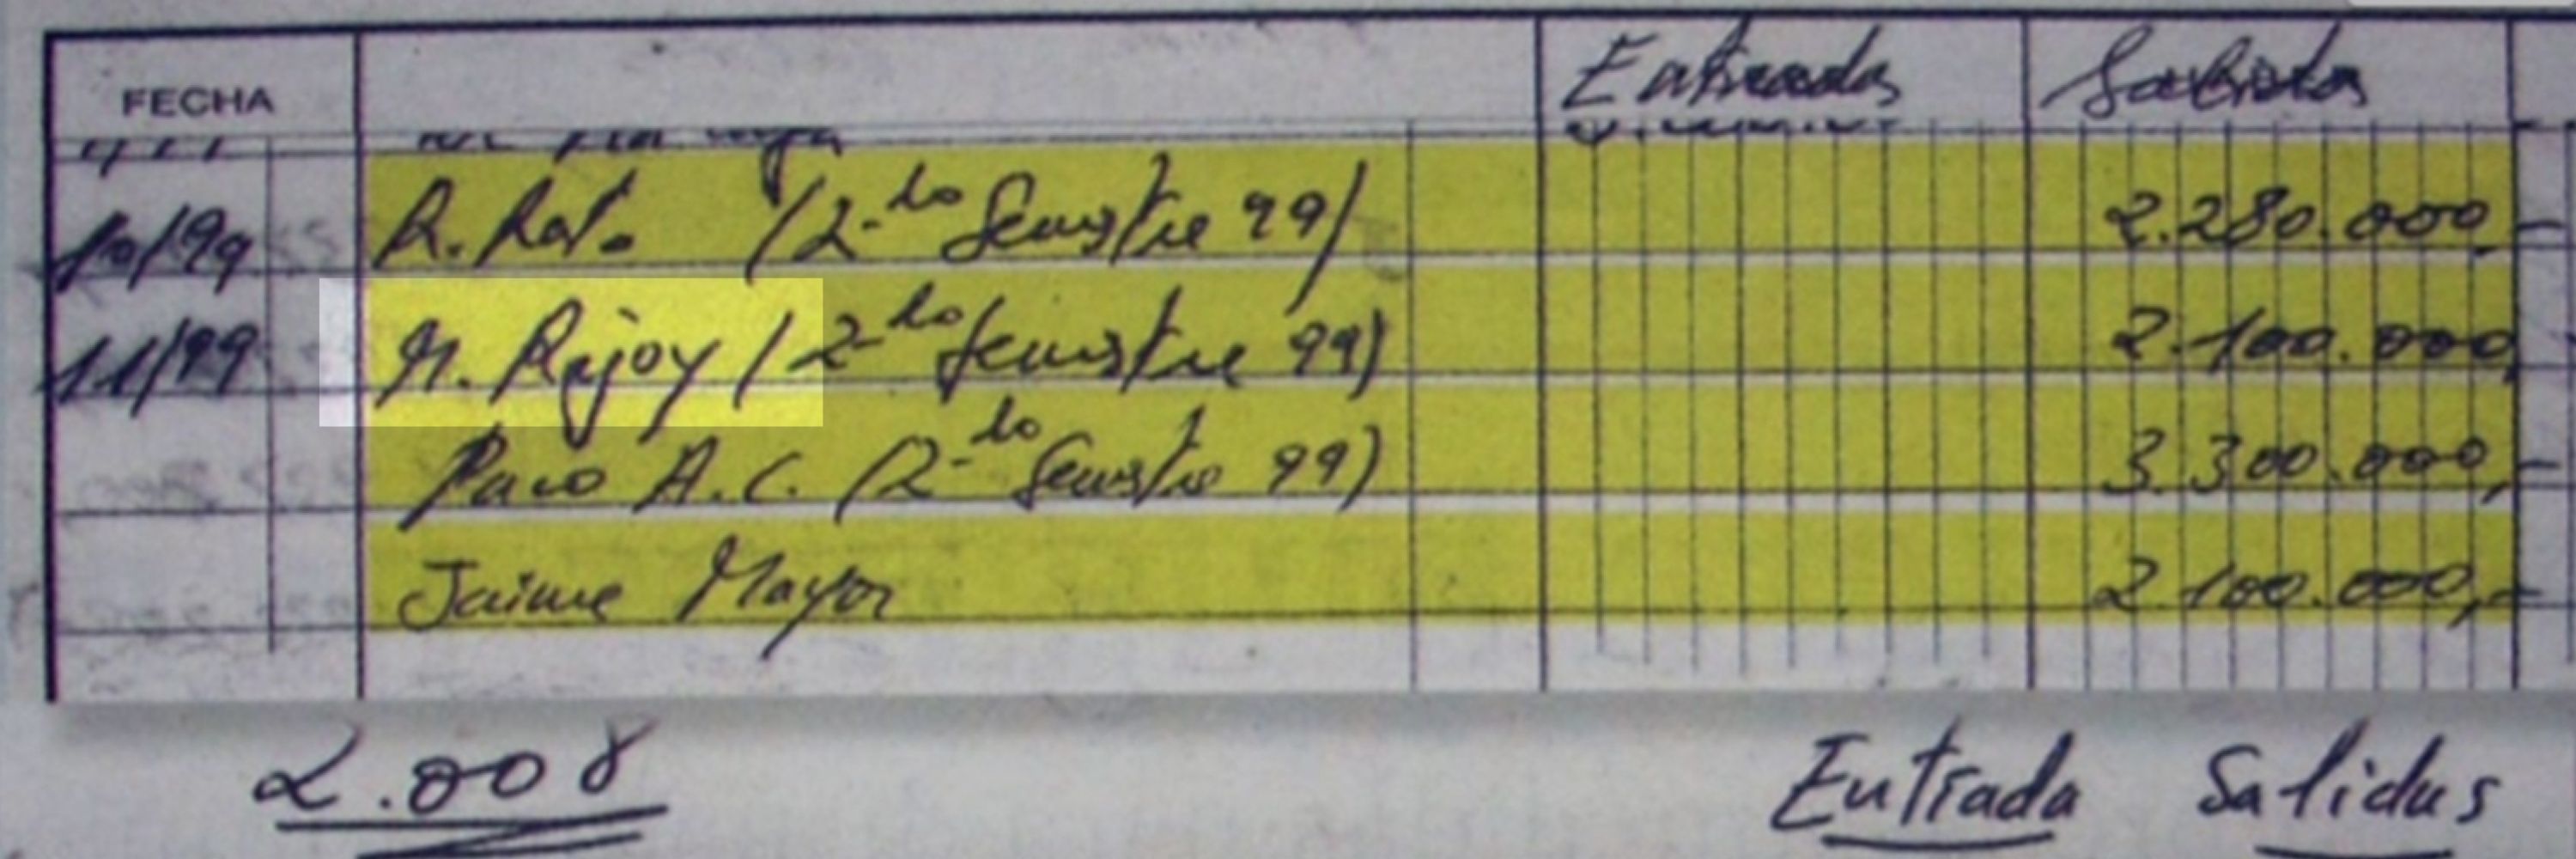 FECHA Entradas Salidas
10/99 R. Rato (2-do Semestre 99) 2.280.000,-
11/99 M. Rajoy (2-do Semestre 99) 2.100.000,
Paco A.C. (2-do Semestre 99) 3.300.000,-
Jaime Mayor 2.100.000,-
2.008 Entrada Salidas